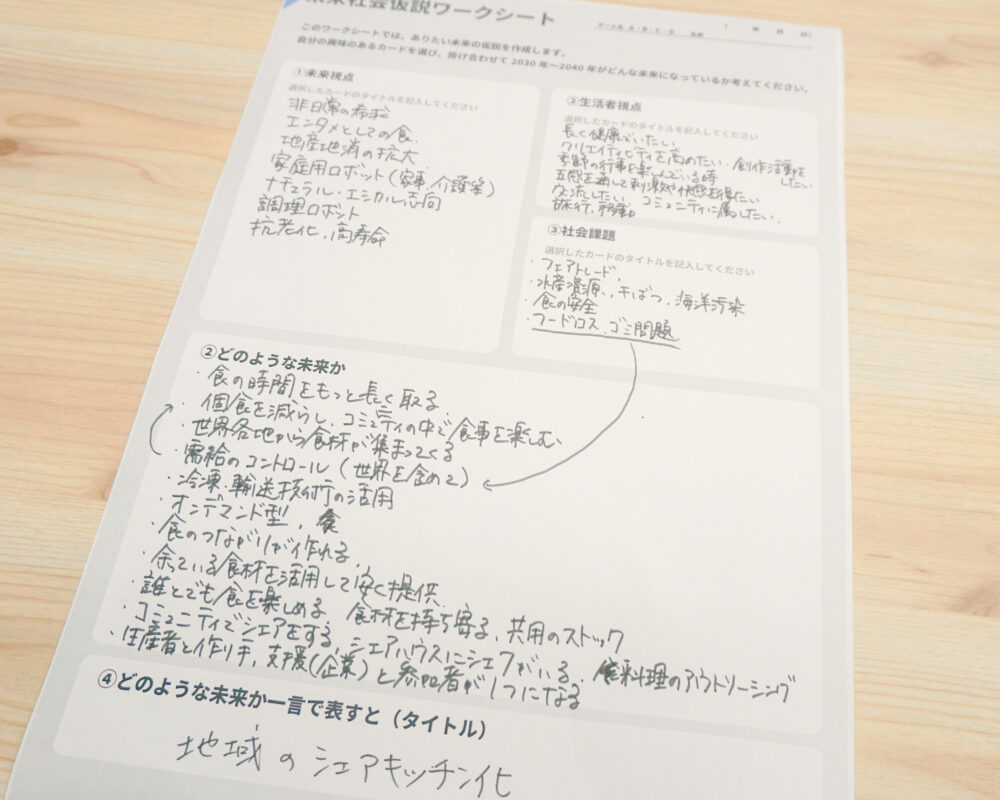 未来社会仮説ワークシート
チーム名 A・B・C・D 名前 ( 年 月 日)
このワークシートでは、ありたい未来の仮説を作成します。
自分の興味のあるカードを選び、掛け合わせて2030年～2040年がどんな未来になっているか考えてください。
①未来視点
選択したカードのタイトルを記入してください
非日常の希求
エンタメとしての食
地産地消の拡大
家庭用ロボット(家事、介護等)
ナチュラル・エシカル志向
調理ロボット
抗老化、高寿命
②生活者視点
選択したカードのタイトルを記入してください
長く健康でいたい
クリエイティビティを高めたい 創作活動をしたい
季節の行事を楽しんでいる時
五感を通して刺激や快感を得たい
交流したい コミュニティに属したい
旅行、移動
③社会課題
選択したカードのタイトルを記入してください
・フェアトレード、
・水産資源、干ばつ、海洋汚染
・食の安全
・フードロス ゴミ問題
②どのような未来か
・食の時間をもっと長く取る
・個食を減らし、コミュニティの中で食事を楽しむ
・世界各地から食材が集まってくる
・需給のコントロール(世界を含めて)
・冷凍、輸送技術の活用
・オンデマンド型、食
・食のつながりが作れる
・余っている食材を活用して安く提供
・誰とでも食を楽しめる 食材を持ち寄る、共用のストック
・コミュニティでシェアをする、シェアハウスにシェフがいる、料理のアウトソーシング
・生産者と作り手、支援(企業)と参加者が1つになる
④どのような未来か一言で表すと(タイトル)
地域のシェアキッチン化